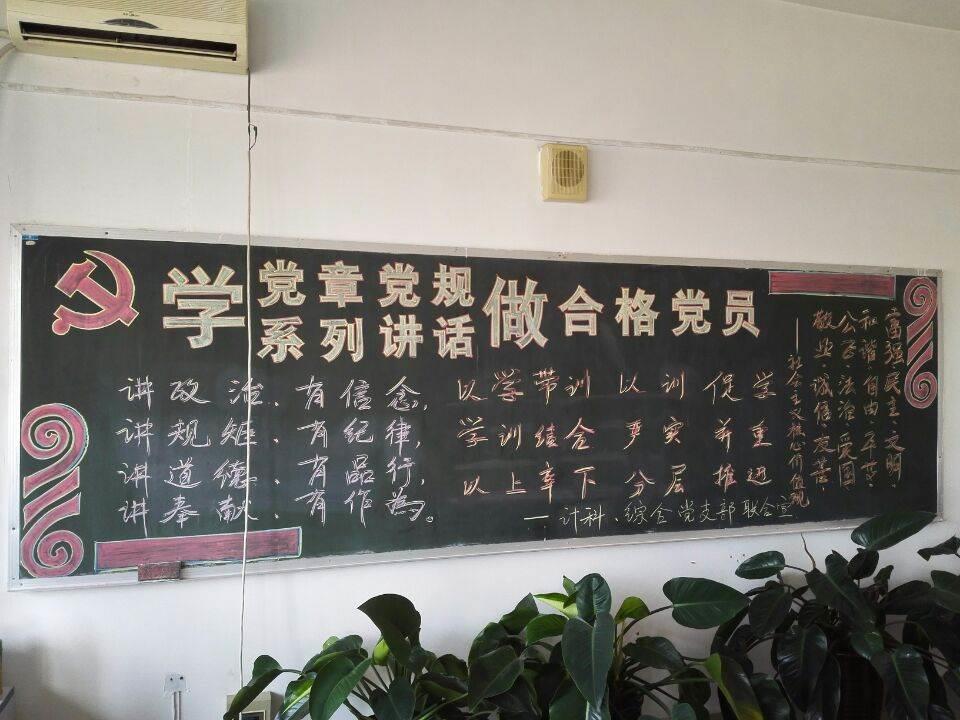 学 党章党规 做合格党员
系列讲话
讲政治、有信念，
讲规矩、有纪律，
讲道德、有品行，
讲奉献、有作為。
以学带训 以训促学
学训结合 严实并重
以上率下 分层推进
——计科、综合党支部联合宣
富强·民主·文明·
和谐·自由·平等·
公正·法治·爱国·
敬业·诚信·友善·
——社会主义核心价值观